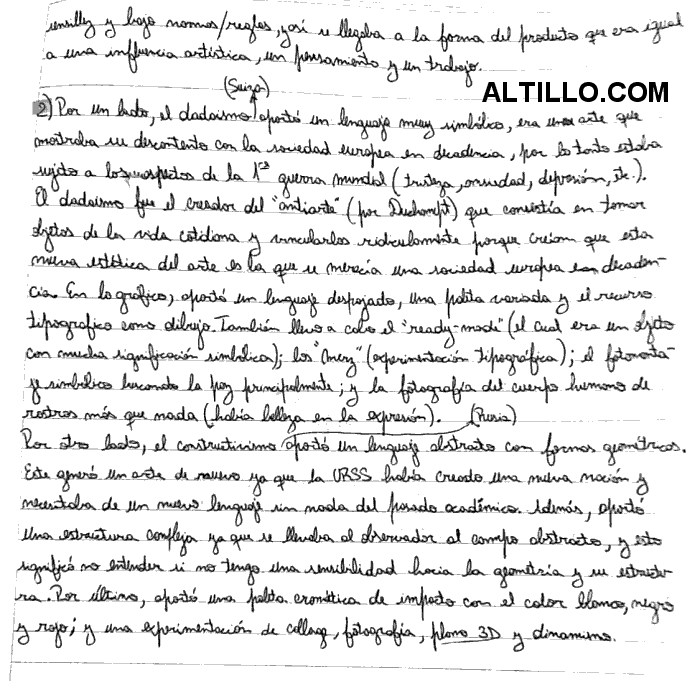 sencillez y bajo normas/reglas, y así se llegaba a la forma del producto que era igual
a una influencia artística, un pensamiento y un trabajo.
(Suiza)
ALTILLO.COM
2) Por un lado, el dadaismo aportó un lenguaje muy simbólico, era un arte que
mostraba su descontento con la sociedad europea en decadencia, por lo tanto estaba
sujeto a los aspectos de la 1ra guerra mundial (tristeza, ansiedad, depresión, etc.).
El dadaismo fue el creador del "antiarte" (por Duchampt) que consistía en tomar
objetos de la vida cotidiana y vincularlos ridiculamente porque creían que esta
nueva estética del arte es la que se merecía una sociedad europea en decaden-
cia. En lo gráfico, aportó un lenguaje despojado, una paleta variada y el recurso
tipografico como dibujo. También llevo a cabo el "ready-made" (el cual era un objeto
con mucha significación simbolica); los "Merz" (experimentación tipografica); el fotomonta-
je simbolico buscando la paz principalmente; y la fotografía del cuerpo humano de
rostros más que nada (había belleza en la expresión). (Rusia)
Por otro lado, el constructivismo aportó un lenguaje abstracto con formas geométricas.
Este generó un arte de nuevo ya que la URSS había creado una nueva nación y
necesitaba de un nuevo lenguaje sin nada del pasado académico. Además, aportó
una estructura compleja ya que se llevaba al observador al campo abstracto, y esto
significó no entender si no tengo una sensibilidad hacia la geometría y su estructu-
ra. Por último, aportó una paleta cromática de impacto con el color blanco, negro
y rojo; y una experimentación de collage, fotografía, plano 3D y dinamismo.